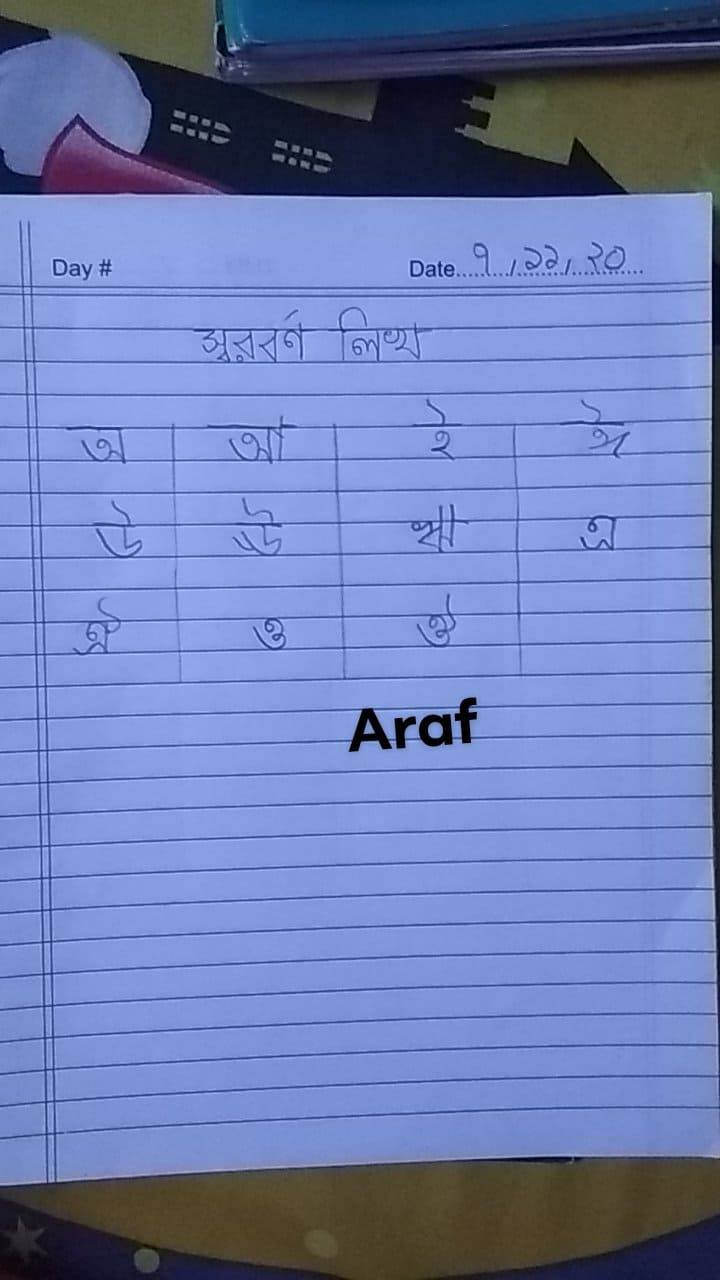 Day # Date ৭,১১,২০
স্বরবর্ণ লিখ
অ আ ই ঈ
উ ঊ ঋ এ
ঐ ও ঔ
Araf